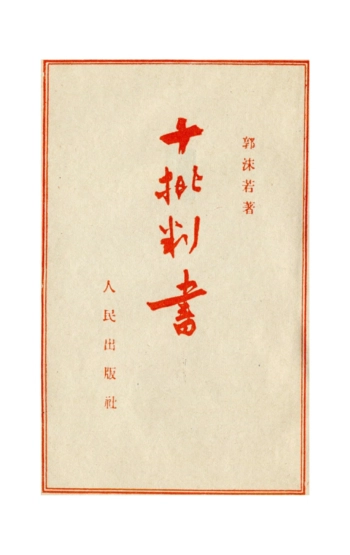 郭沫若著
十批判書
人民出版社